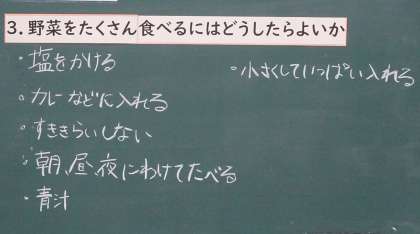 3. 野菜をたくさん食べるにはどうしたらよいか
・塩をかける
。カレーなどに入れる
。すききらいしない
・朝、昼、夜にわけてたべる
・青汁
。小さくしていっぱい入れる